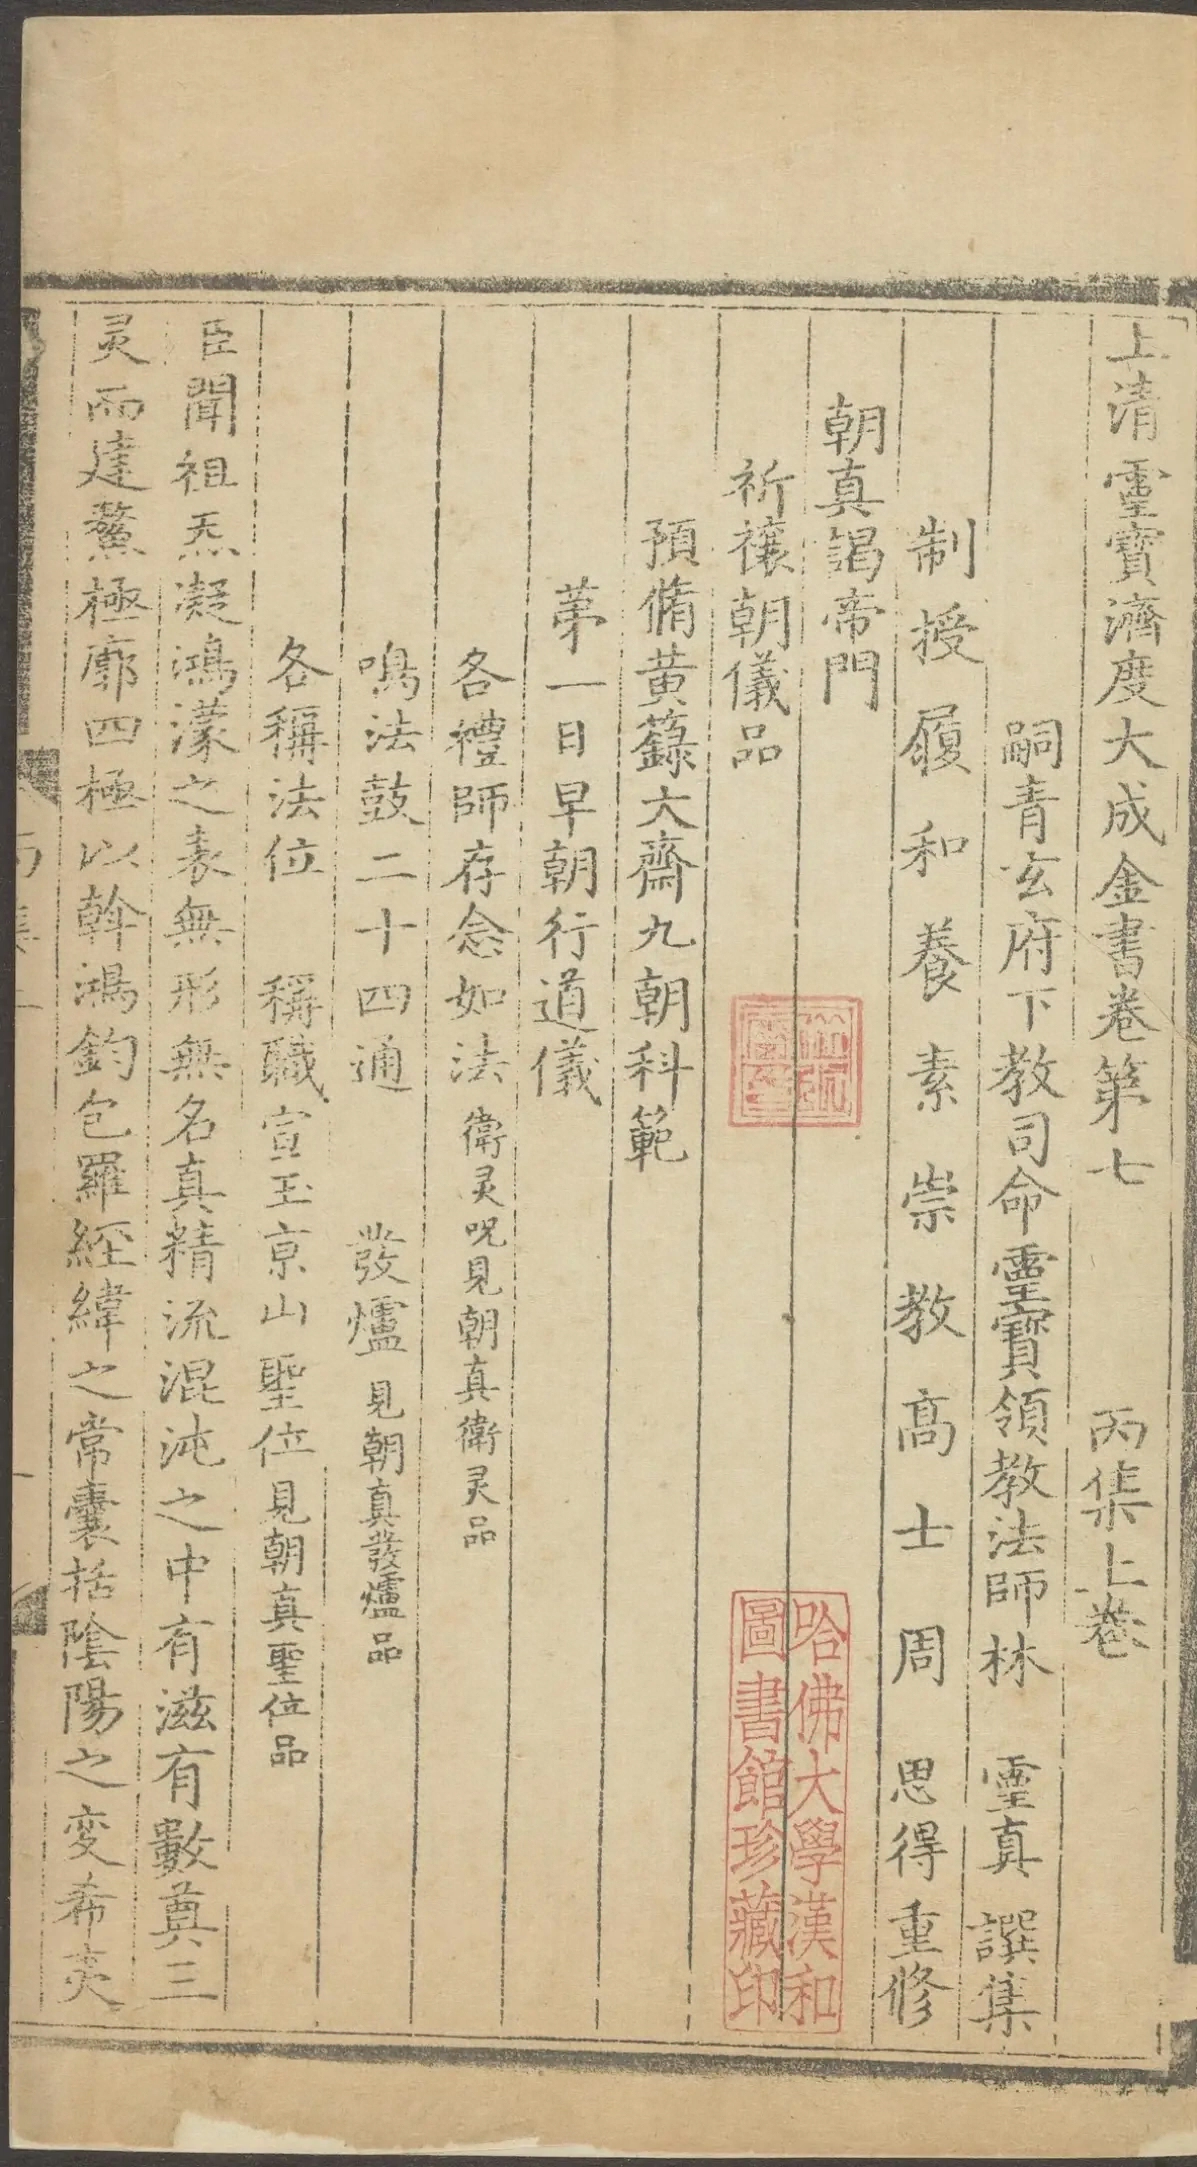 上清靈寶濟度大成金書卷第七 丙集上卷
嗣青玄府下教司命靈寶領教法師林 靈真 譔集
制授履和養素崇教高士周 思得重修
朝真謁帝門
祈禳朝儀品
預脩黃籙大齋九朝科範
苐一日早朝行道儀
各禮師存念如法 衛灵呪見朝真衛灵品
鳴法鼓二十四通 發爐 見朝真發爐品
各稱法位 稱職宣玉京山聖位見朝真聖位品
臣聞祖炁凝鴻濛之表無形無名真精流混沌之中有滋有數奠三
灵而建鰲極廓四極以斡鴻鈞包羅經緯之常囊括陰陽之变希夷
哈佛大學漢和
圖書館珍藏印